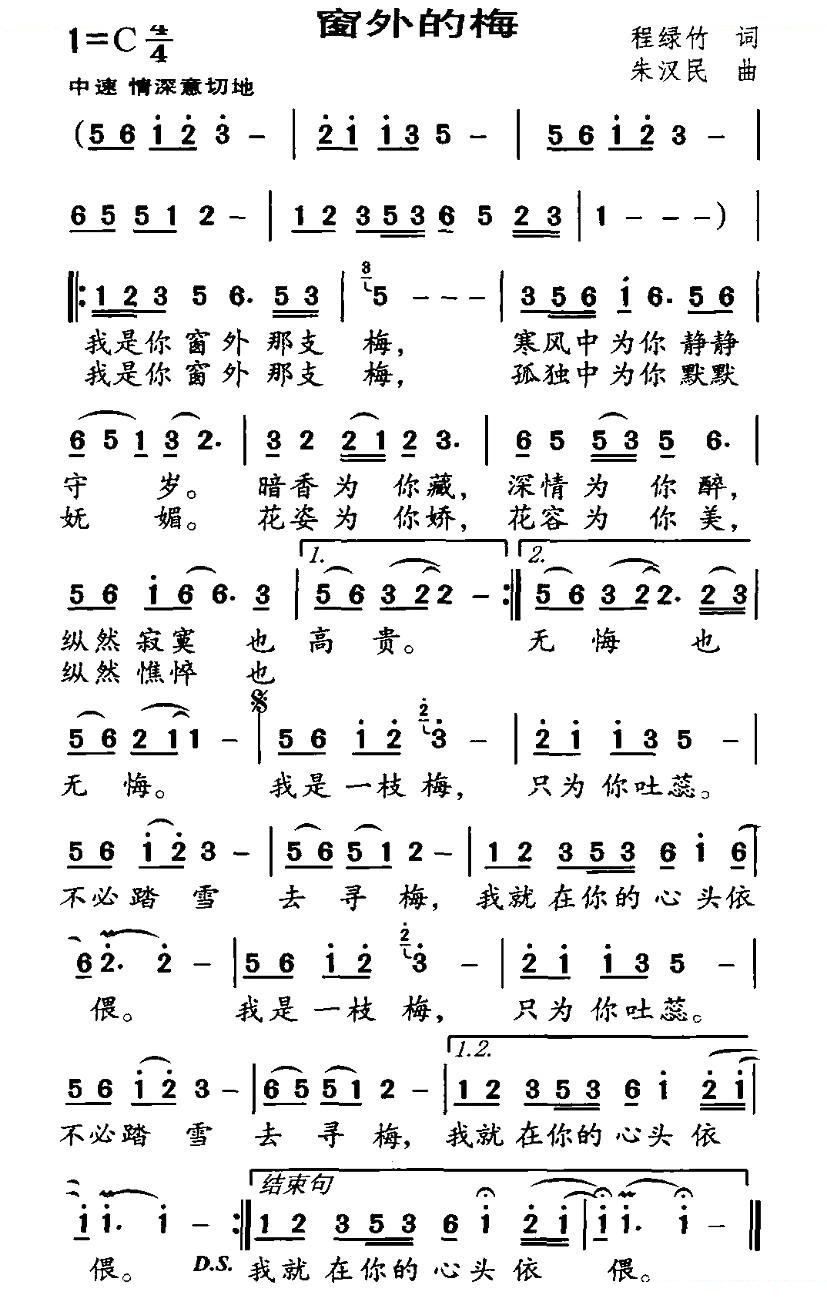 窗外的梅
1=C 4/4
程绿竹 词
朱汉民 曲
中速 情深意切地
(5 6 1 2 3 - | 2 1 1 3 5 - | 5 6 1 2 3 - |
6 5 5 1 2 - | 1 2 3 5 3 6 5 2 3 | 1 - - -) |
3
|: 1 2 3 5 6. 5 3 | 5 - - - | 3 5 6 1 6. 5 6 |
我是你 窗 外 那支 梅, 寒风中 为你 静静
我是你 窗 外 那支 梅, 孤独中 为你 默默
6 5 1 3 2. | 3 2 2 1 2 3. | 6 5 5 3 5 6. |
守 岁。 暗香 为 你藏, 深情 为 你 醉,
妩 媚。 花姿 为 你娇, 花容 为 你 美,
1. 2.
5 6 1 6 6. 3 | 5 6 3 2 2 - :| 5 6 3 2 2. 2 3 |
纵然 寂寞 也 高 贵。 无 悔 也
纵然 憔悴 也
2
5 6 2 1 1 - | 5 6 1 2 3 - | 2 1 1 3 5 - |
无 悔。 我是 一枝 梅, 只为 你吐蕊。
5 6 1 2 3 - | 5 6 5 1 2 - | 1 2 3 5 3 6 1 6 |
不必踏 雪 去 寻 梅, 我就 在你的 心 头依
2
6 2. 2 - | 5 6 1 2 3 - | 2 1 1 3 5 - |
偎。 我是 一枝 梅, 只为 你吐蕊。
1.2.
5 6 1 2 3 - | 6 5 5 1 2 - | 1 2 3 5 3 6 1 2 1 |
不必踏 雪 去 寻 梅, 我就 在你的 心头 依
结束句
1 1. 1 - :| 1 2 3 5 3 6 1 2 1 | 1 1. 1 - ||
偎。 D.S. 我就 在你的 心头 依 偎。